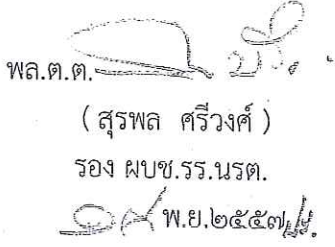 พล.ต.ต.
( สุรพล ศรีวงศ์ )
รอง ผบช.รร.นรต.
พ.ย.๒๕๕๗